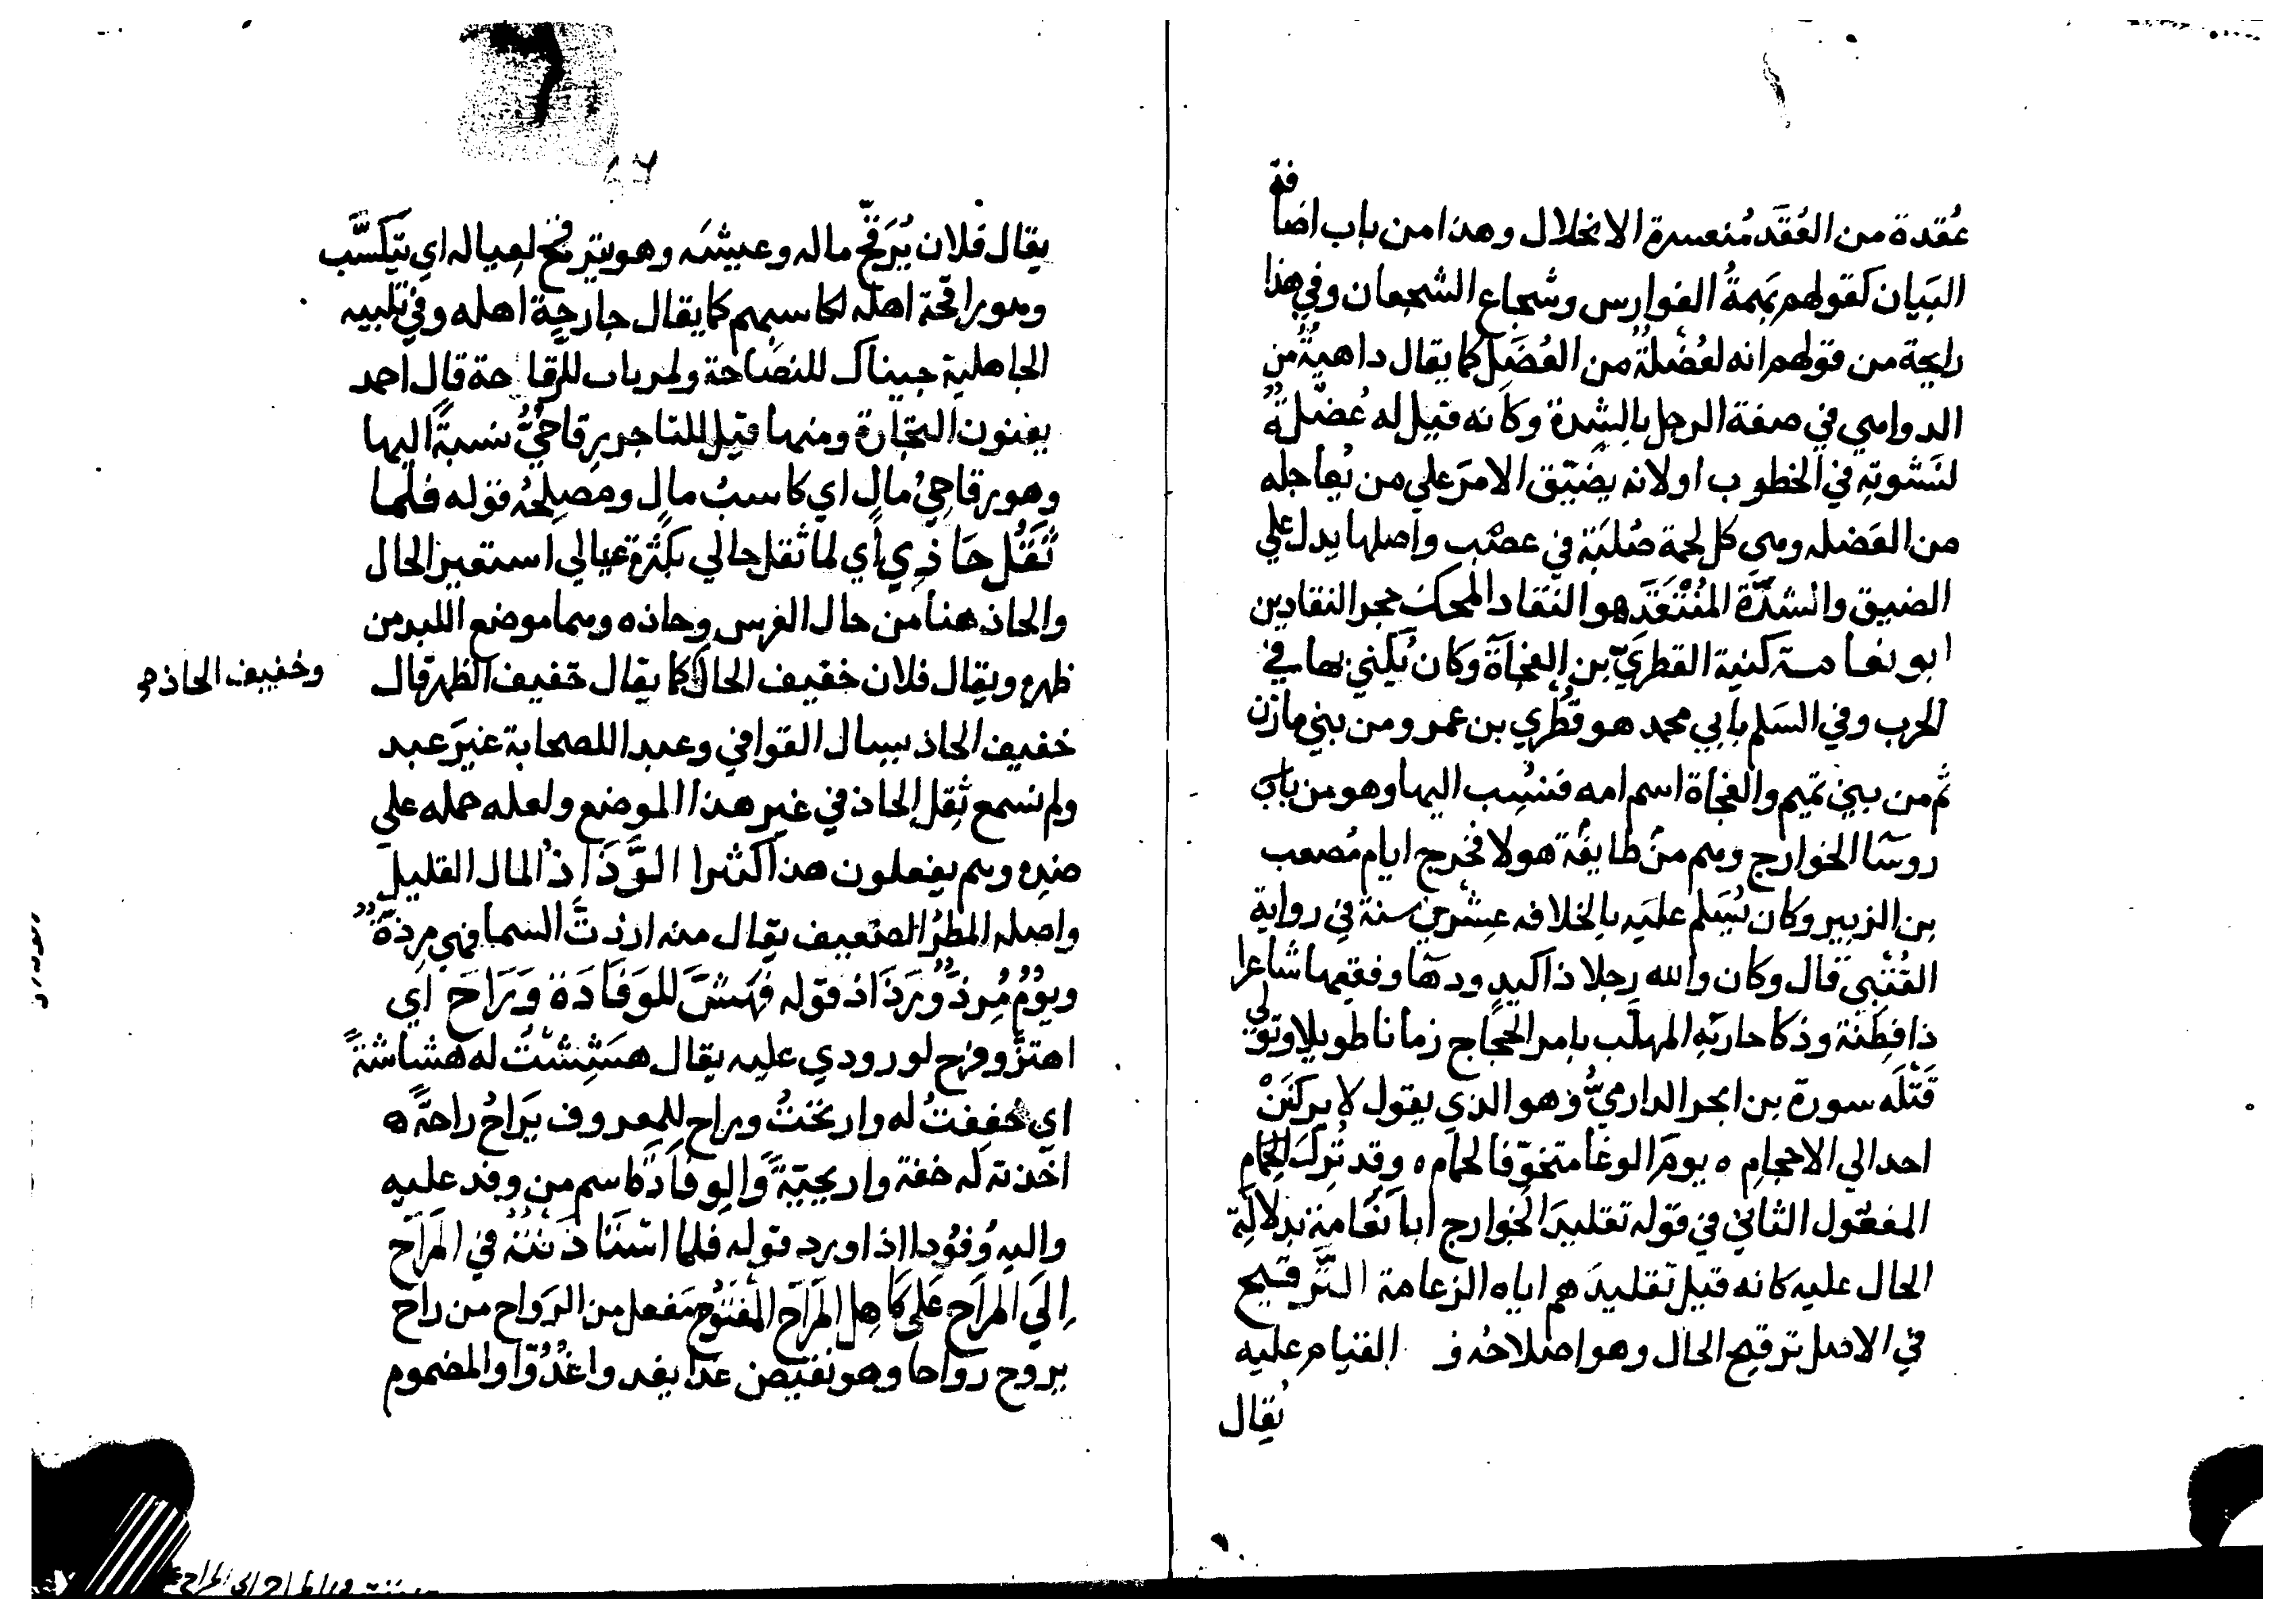 عُقدة من العُقَد مُتعسرة الانحلال وهذا من باب اضافة
البَيان كقولهم بَهمةُ الفوارس وشجاع الشجعان وفي هذا
رايحة من قولهم انه لعُضلةٌ من العُضَل كما يقال داهيةٌ من
الدواهي في صفة الرجل بالشدة وكانه قيل له عُضلةٌ
لنشوته في الخطوب او لانه يضيّق الامرَ علي من يعاجله
من العَضله وهي كل لحمة صُلبَة في عصَب واصلها يدل علي
الضيق والشدّة المُنْتَقَد هو النقاد المحك حجر النقادين
ابو نعامة كنية القطريّ بن الفجآة وكان يُكني بها في
الحرب وفي السَلم بابي محمد هو قَطْري بن عمرو من بني مازن
ثم من بني تميم والفجاة اسم امه فنُسِب اليها وهو من
روسآ الخوارج وهم من طايفة هولا فخرج ايام مُصعب
بن الزبير وكان يُسَلم عليَه بالخلافه عِشرين سنة في رواية
القُتَبي قال وكان والله رجلا ذا كيد ودهآ وفقيها شاعرا
ذا فِطنَة وذكا حاربَه المهلّب بامر الحجاج زمانا طويلا وتولي
قَتْلَه سورة بن ابجر الدارميُّ وهو الذي يقول لا يركنَنْ
احد الي الاحجام ه يومَ الوغا متخوِّفا لحمام ه وقد تُرِك
المفعول الثاني في قوله تقليدَ الخوارج ابا نَعَامة بدلالة
الحال عليه كانه قيل تقليدَهم اياه الزعامة التَّرقيح
في الاصل ترقيح الحال وهو اصلاحُه و القيام عليه
يُقال
يقال فلان يُرَقِّح ماله وعيشَه وهو يترقح لعياله اي يتكسَّب
وهو راقحة اهله لكاسبهم كما يقال جارحة اهله وفي تلبيه
الجاهلية جيناك للنصاحة ولم ياب للرقاحة قال احمد
يعنون التجارة ومنها قيل للتاجر رقاحيٌّ نسبةً اليها
وهو رقاحيُّ مال اي كاسبُ مال ومصلحُه قوله فلما
ثَقُل حَاذِي اي لما ثقل حالي بكثرة عيالي استعير الحال
والحاذ هنا من حال الفرس وحاذه وهما موضع اللبد من
ظهره ويقال فلان خفيف الحال كما يقال خفيف الظهر قال
وخفيف الحاذ
خفيف الحاذ نسال القوافي وعبد اللصحابة غيرَ عبد
ولم نسمع ثِقل الحاذ في غير هذا الموضع ولعله حمله علي
ضده وهم يفعلون هذا كثيرا الرَّذَاذُ المال القليل
واصله المطرُ الضعيف يقال منه ارذتَ السما فهي مِرذّةٌ
ويومٌ مُرِذٌّ ورَذَاذ قوله فهَشَّ للوَفَادَة وَرَاحَ اي
اهتزَّ وفرح لورودي عليه يقال هَشِشتُ له هَشاشةً
اي خففِتُ له وارتَحتُ وراح للمعروف يَراحُ راحةً ه
اخذته له خفة واريحيّةٌ والوفادَة اسم من وفد عليه
واليه وُفوُدا اذا ورد قوله فلما استَاذَنتُه في المَرَاح
اِلَي المُراح عَلَي كَاهِل المِرَاح المفتوح مَفعل من الرَواح من راح
يروح رواحا وهو نقيض غدا يغدو اغُدُوّا والمضموم